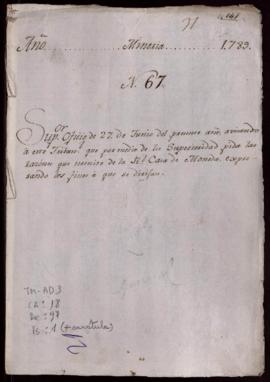 Año. Mineria. 1.783.
N. 67.
Sup.or Oficio de 27. de Junio del presente año,
á este que por medio de la Superioridad pida las
razones que necesite de la Rl. Casa de Moneda, expre
sando los fines á que se dirijan.
TM-AD3
CA: 18
De: 97
Fs: 1 (+ carátula)